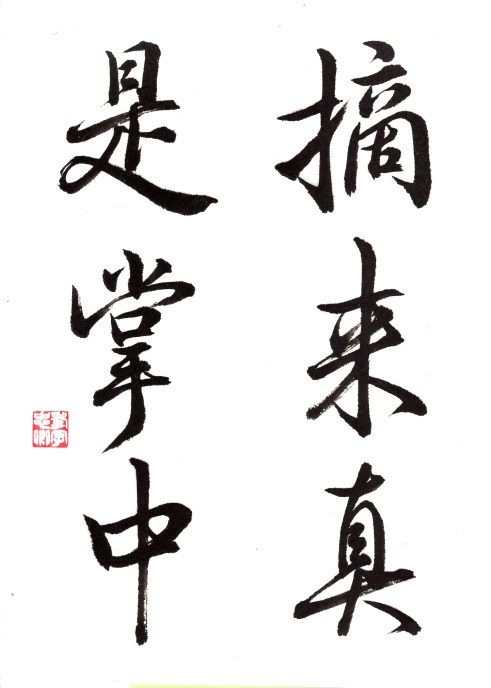 摘来真
是掌中